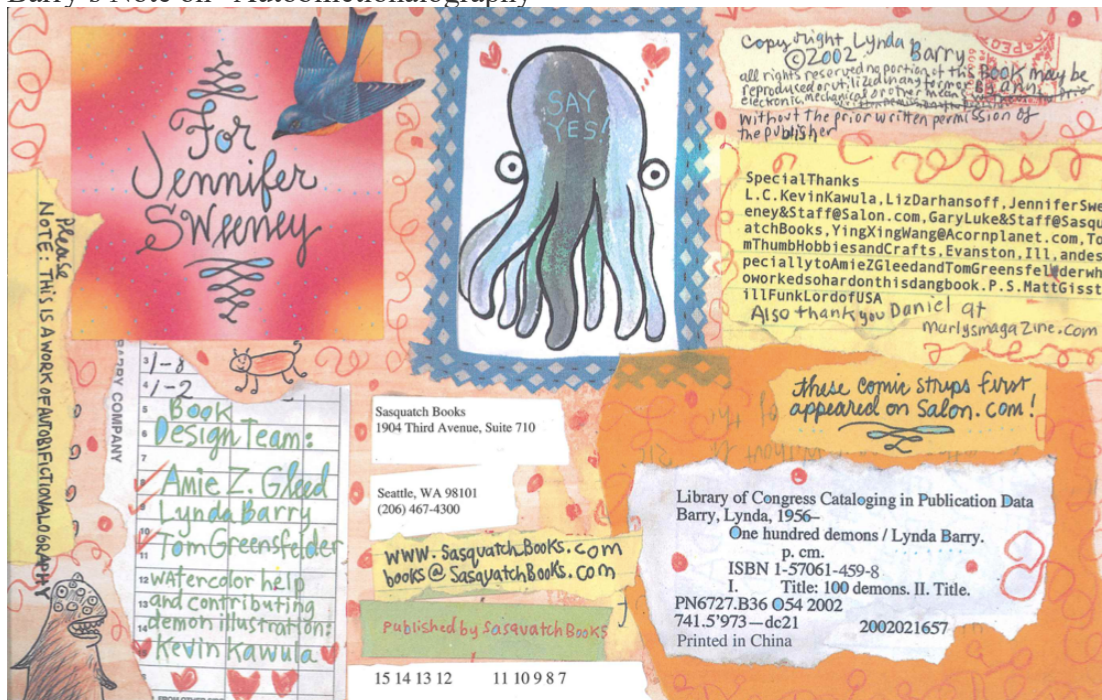 Barry's Note on "Autobifictionalography"
For
Jennifer
Sweeney
SAY
YES!
Copyright Lynda Barry
©2002
all rights reserved no portion of this Book may be
reproduced or utilized in any form or By any
electronic, mechanical or other means
without the prior written permission of
the publisher
SpecialThanks
L.C.KevinKawula,LizDarhansoff,JenniferSwe
eney&Staff@Salon.com,GaryLuke&Staff@Sasqu
atchBooks,YingXingWang@Acornplanet.com,To
mThumbHobbiesandCrafts,Evanston,Ill,andes
peciallytoAmieZGleedandTomGreensfelderwh
oworkedsohardonthisdangbook.P.S.MattGisst
illFunkLordofUSA
Also thank you Daniel at
marlysmagazine.com
Please
NOTE: THIS IS A WORK OF AUTOBIFICTIONALOGRAPHY
BARRY COMPANY
3 1-8
4 1-2
5 Book
6 Design Team:
7
Amie Z. Gleed
9 Lynda Barry
10
11 Tom Greensfelder
12 watercolor help
13 and contributing
14 demon illustration:
15 Kevin Kawula
Sasquatch Books
1904 Third Avenue, Suite 710
Seattle, WA 98101
(206) 467-4300
www.SasquatchBooks.com
books@SasquatchBooks.com
published by Sasquatch Books
15 14 13 12 11 10 9 8 7
these comic strips first
appeared on Salon.com!
Library of Congress Cataloging in Publication Data
Barry, Lynda, 1956–
One hundred demons / Lynda Barry.
p. cm.
ISBN 1-57061-459-8
I. Title: 100 demons. II. Title.
PN6727.B36 O54 2002
741.5'973—dc21 2002021657
Printed in China